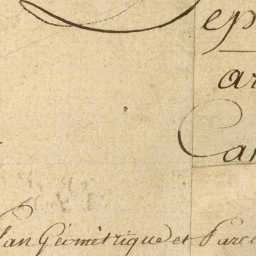 ep
ar
Can
lan Géométrique et Parce